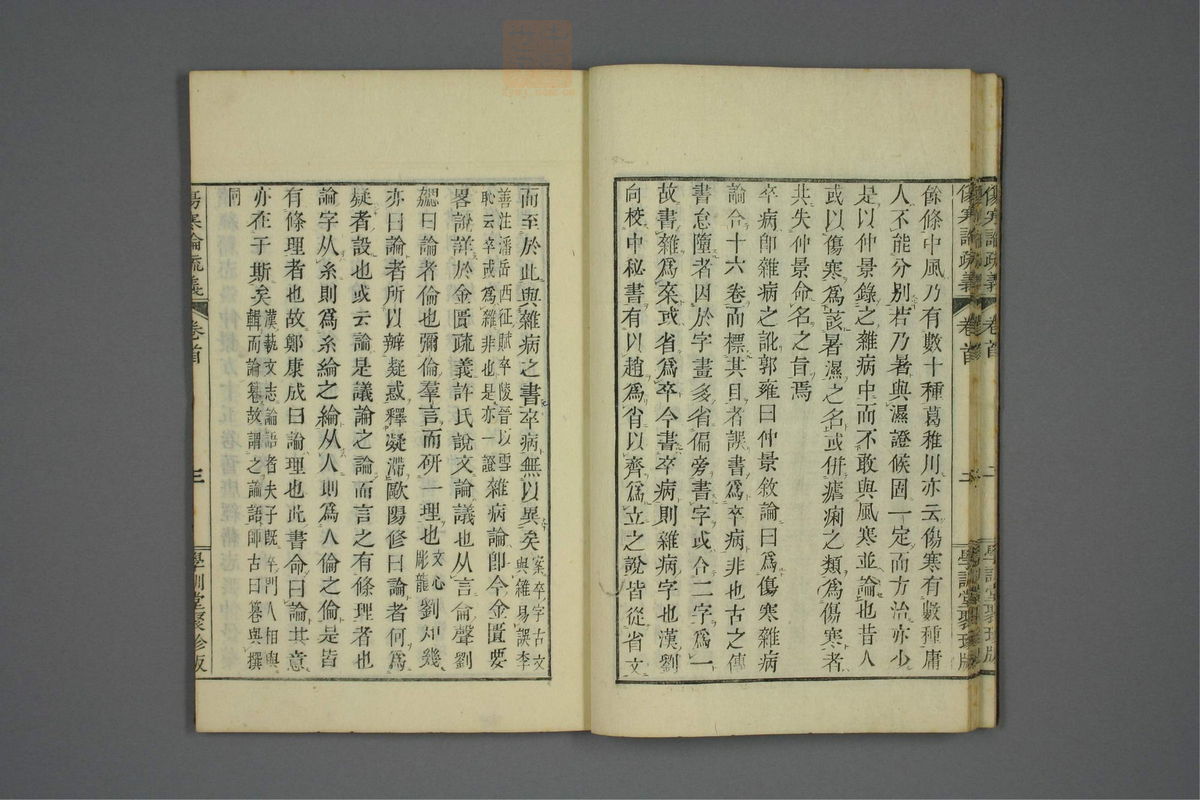 傷寒論疏義
卷首
二
學訓堂聚珍版
餘條中風乃有數十種葛稚川亦云傷寒有數種庸
人不能分別若乃暑與濕證候固一定而方治亦少
是以仲景錄之雜病中而不敢與風寒並論也昔人
或以傷寒爲該暑濕之名或併瘧痢之類爲傷寒者
共失仲景命名之旨焉
卒病卽雜病之訛郭雍曰仲景敘論曰爲傷寒雜病
論合十六卷而標其目者誤書爲卒病非也古之傳
書怠墮者因於字畫多省偏旁書字或合二字爲一
故書雜爲卒或省爲卒今書卒病則雜病字也漢劉
向校中秘書有以趙爲肖以齊爲立之說皆從省文
而至於此與雜病之書卒病無以異矣案卒字古文與雜易誤李
善注潘岳西征賦卒陵晉以雪恥云卒或爲雜非也是亦一證雜病論卽今金匱要
畧說詳於金匱疏義許氏說文論議也从言侖聲劉
勰曰論者倫也彌倫羣言而研一理也文心彫龍劉知幾
亦曰論者所以辨疑惑釋凝滯歐陽修曰論者何爲
疑者設也或云論是議論之論而言之有條理者也
論字从糸則爲糸綸之綸从人則爲人倫之倫是皆
有條理者也故鄭康成曰論理也此書命曰論其意
亦在于斯矣漢藝文志論語者夫子既卒門人相與輯而論篹故謂之論語師古曰篹與撰
同
傷寒論疏義
卷首
三
學訓堂聚珍版